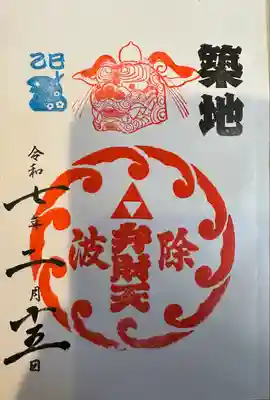 築地
乙巳
除
弁財天
波
令和七年二月十五日